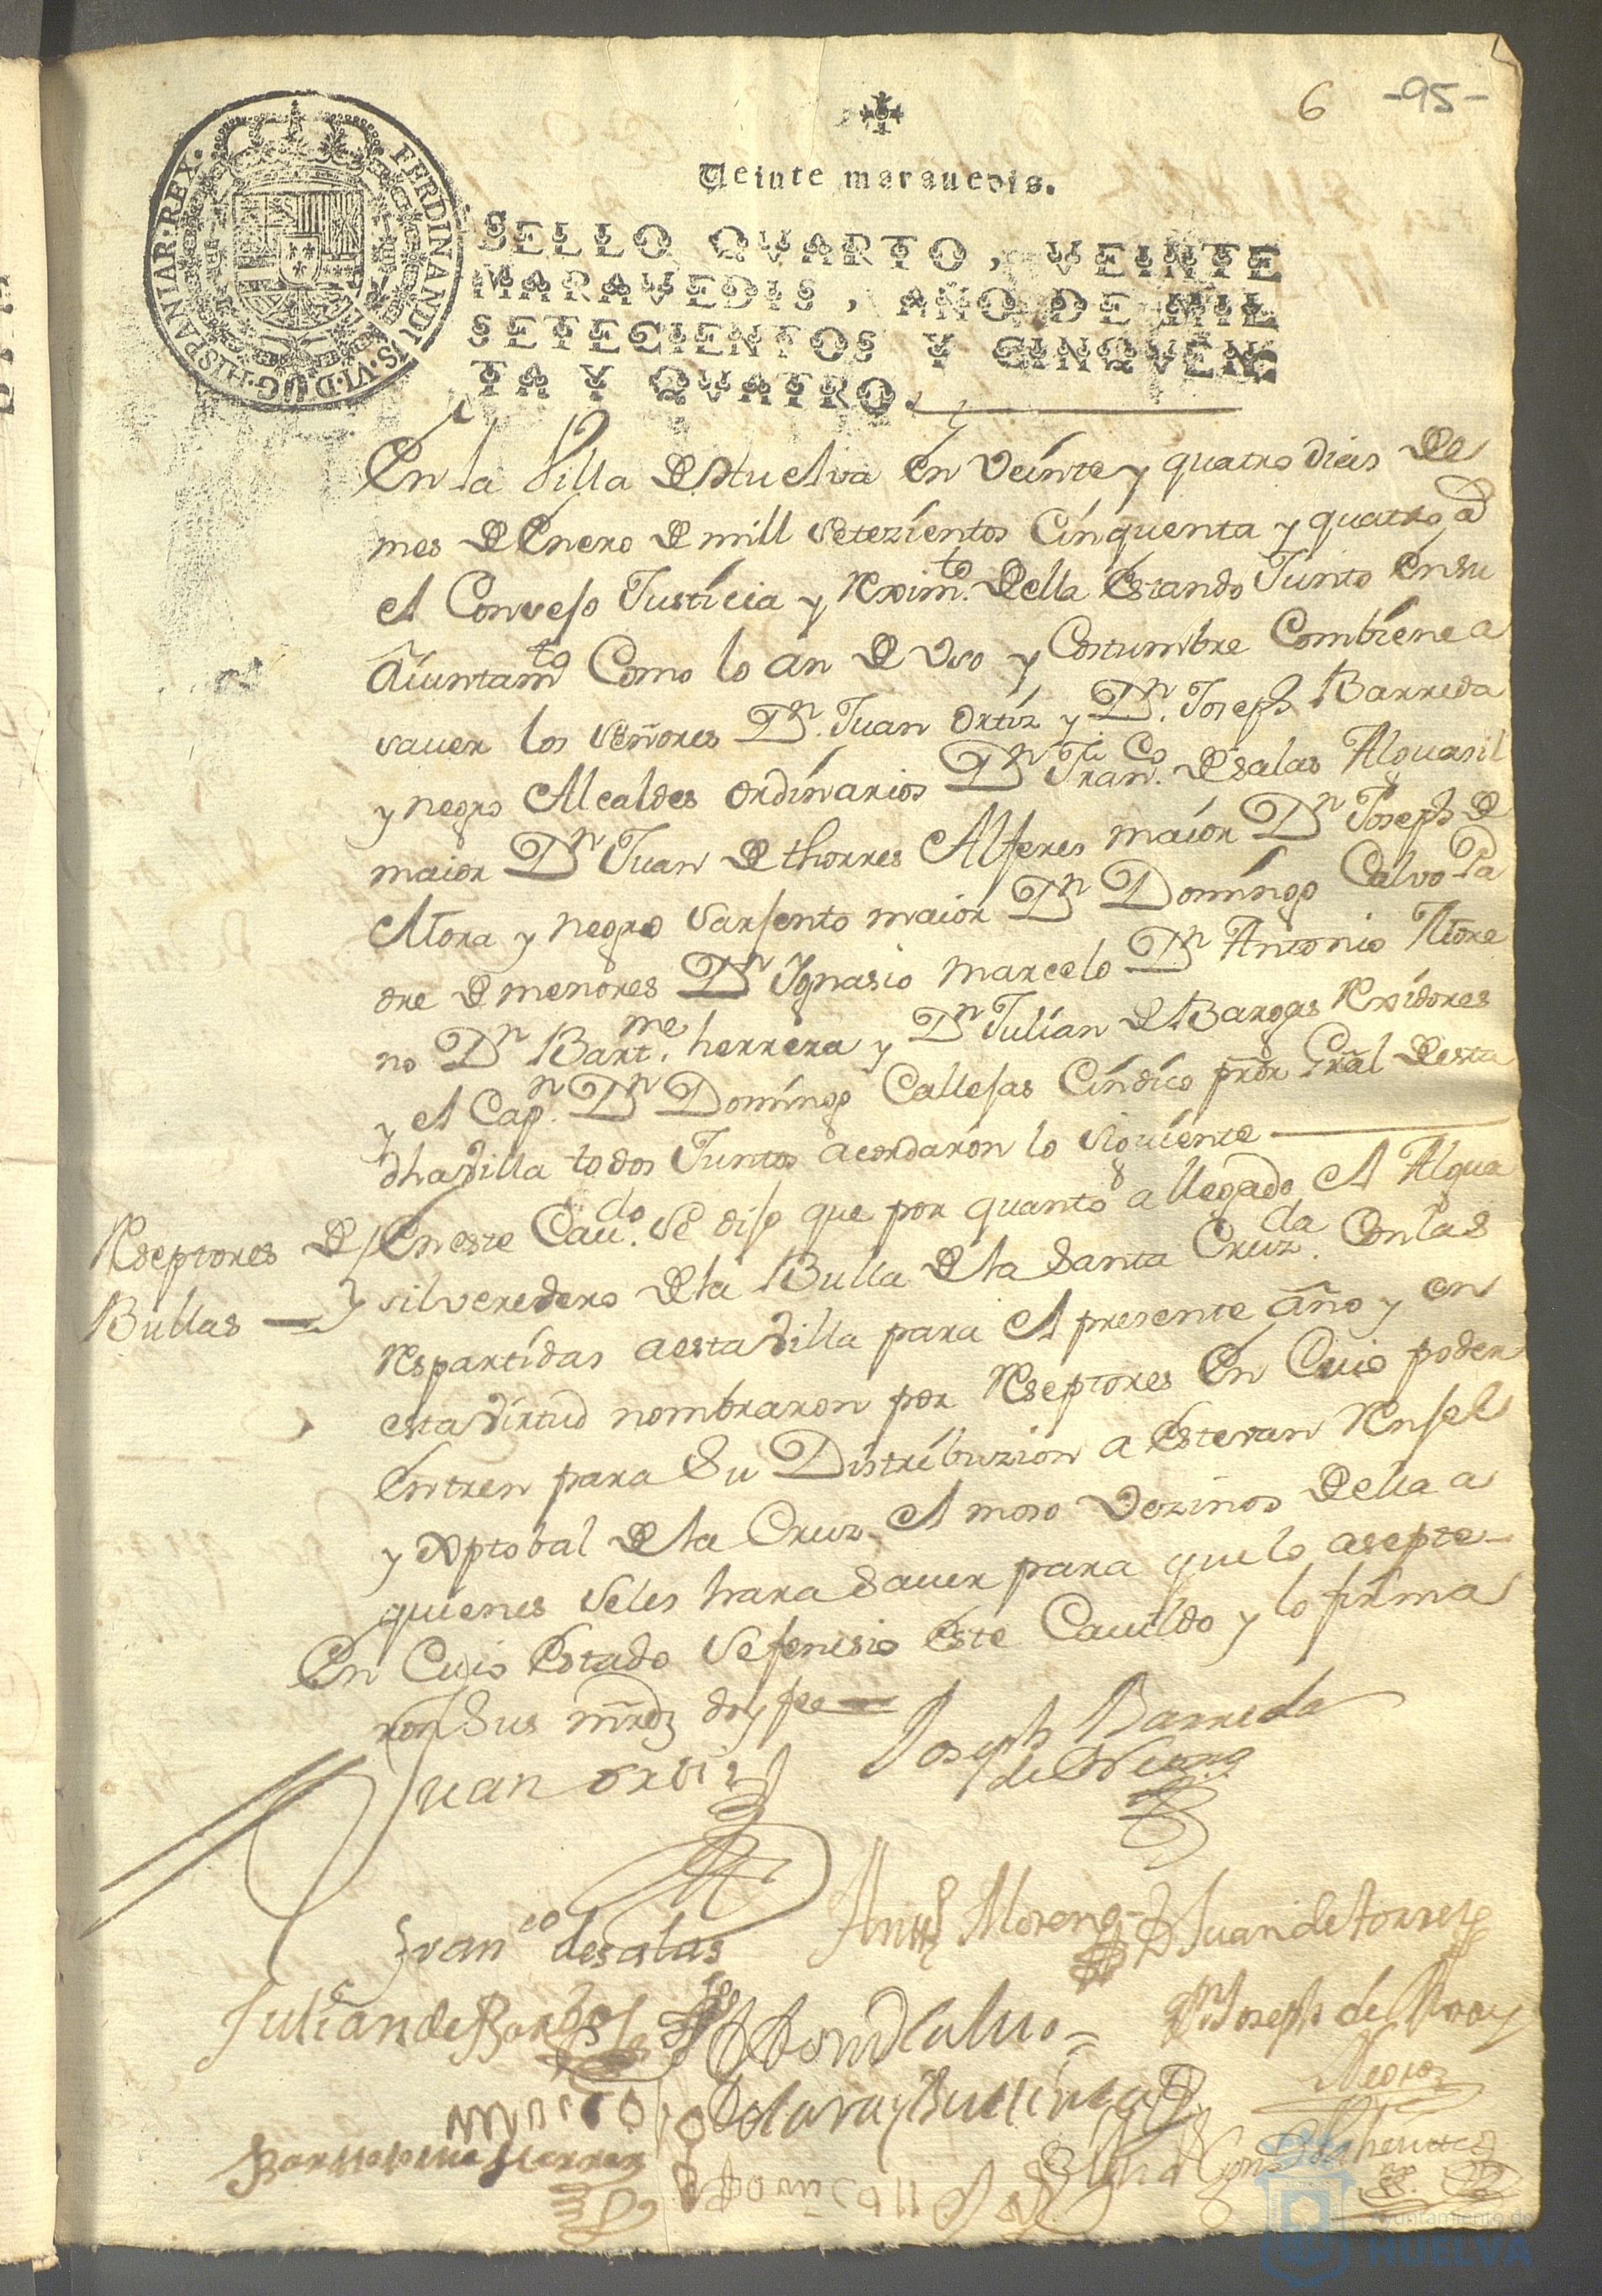 6 -95-
Veinte maravedis.
FERDINANDUS·VI·D·G·HISPANIAR·REX·
SELLO QVARTO, VEINTE
MARAVEDIS, AÑO DE MIL
SETECIENTOS Y CINQVEN
TA Y QVATRO.
En la Villa de Huelva en veinte y quatro dias de
mes de Enero de mill setezientos cinquenta y quatro ad
el Consejo Justicia y Reximto. della estando Junto en su
Aiuntamto Como lo an de vso y Costumbre Combiene a
sauer los señores Dn. Juan ortiz y Dn. Joseph Barreda
y negro Alcaldes ordinarios Dn Franco. de salas Alguasil
maior Dn Juan de thorres Alferes maior Dn Joseph de
Mora y negro Sarjento maior Dn Domingo Calvo Pa
dre de menores Dn Ygnasio marcelo Dn Antonio More
no Dn Bartme. herrera y Dn Julian de Bargas Rexidores
y el Capn. Dn Domingo Callejas Cindico prór Grãl de esta
dha Villa todos Juntos acordaron lo siguiente
Reseptores de
Bullas
En este Caudo. Se dijo que por quanto a llegado el Algua
sil veredero de la Bulla de la Santa Cruzda. Con las
Respartidas a esta Villa para el presente año y en
esta virtud nombraron por Reseptores en Cuio poder
entren para Su Distribuzion a Estevan Renjel
y Xptobal de la Cruz el moso vezinos della a
quienes seles hara Sauer para que lo asepte
En Cuio Estado se fenesio este Cauildo y lo firma
ron Sus mrds doy fee
Juan ortis
Joseph Barreda
de Negro
Franco de salas
Antt Moreno
Juan de torres
Julian de Bargas
Domo Calvo
Joseph de Mora y
Negro
Bartholome Herrera
Domn Call